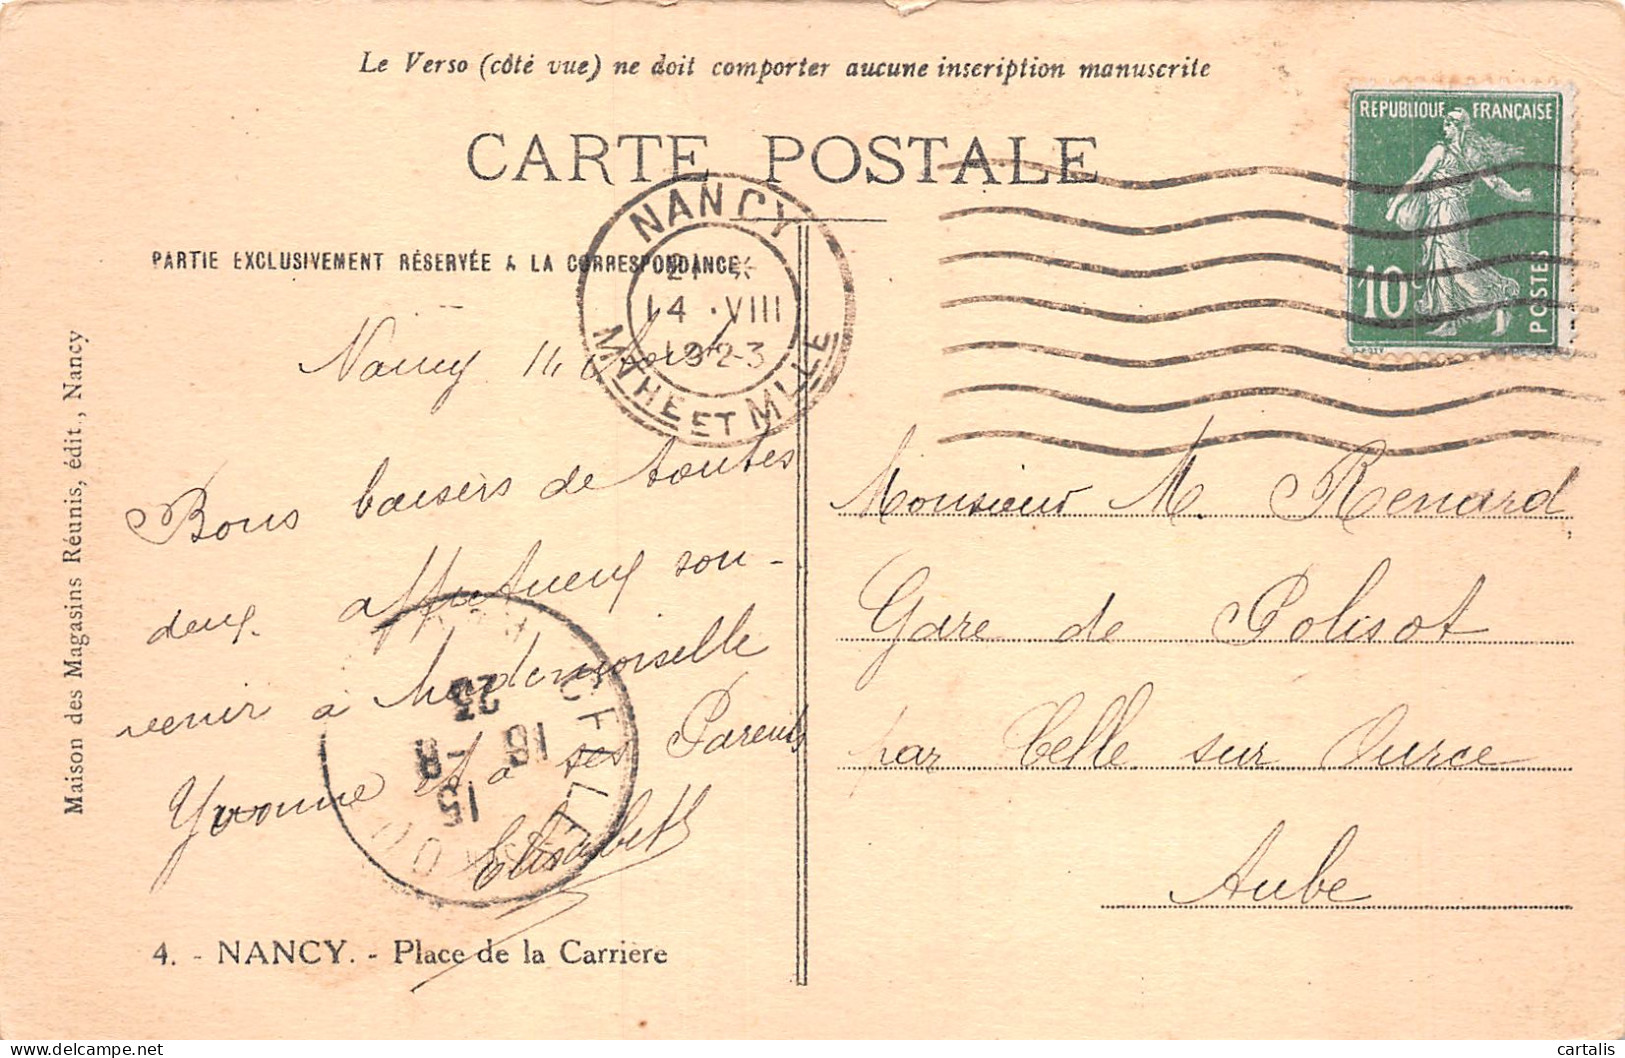 Le Verso (côté vue) ne doit comporter aucune inscription manuscrite
CARTE POSTALE
REPUBLIQUE FRANÇAISE
10c
POSTES
NANCY
21
14 · VIII
1923
MRHE ET MLLE
PARTIE EXCLUSIVEMENT RÉSERVÉE A LA CORRESPONDANCE
Maison des Magasins Réunis, édit., Nancy
Nancy 14 Août
Bons baisers de toutes
deux affectueux sou-
venir à Mademoiselle
Yvonne et a ses Parents
Elisabeth
Monsieur M. Renard
Gare de Polisot
par Celle sur Ource
Aube
15 -8
23
4. - NANCY. - Place de la Carrière
cartalis